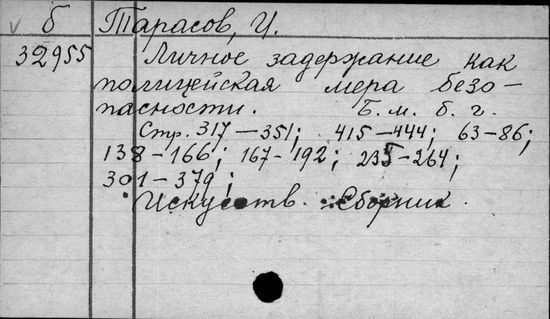 б Тарасов, И.
32955 Личное задержание как
полицейская мера безо-
пасности. Б. м. б. г.
Стр. 317-351; 415-444; 63-86;
138-166; 167-192; 235-264;
301-379;
Искусств. Сборник.